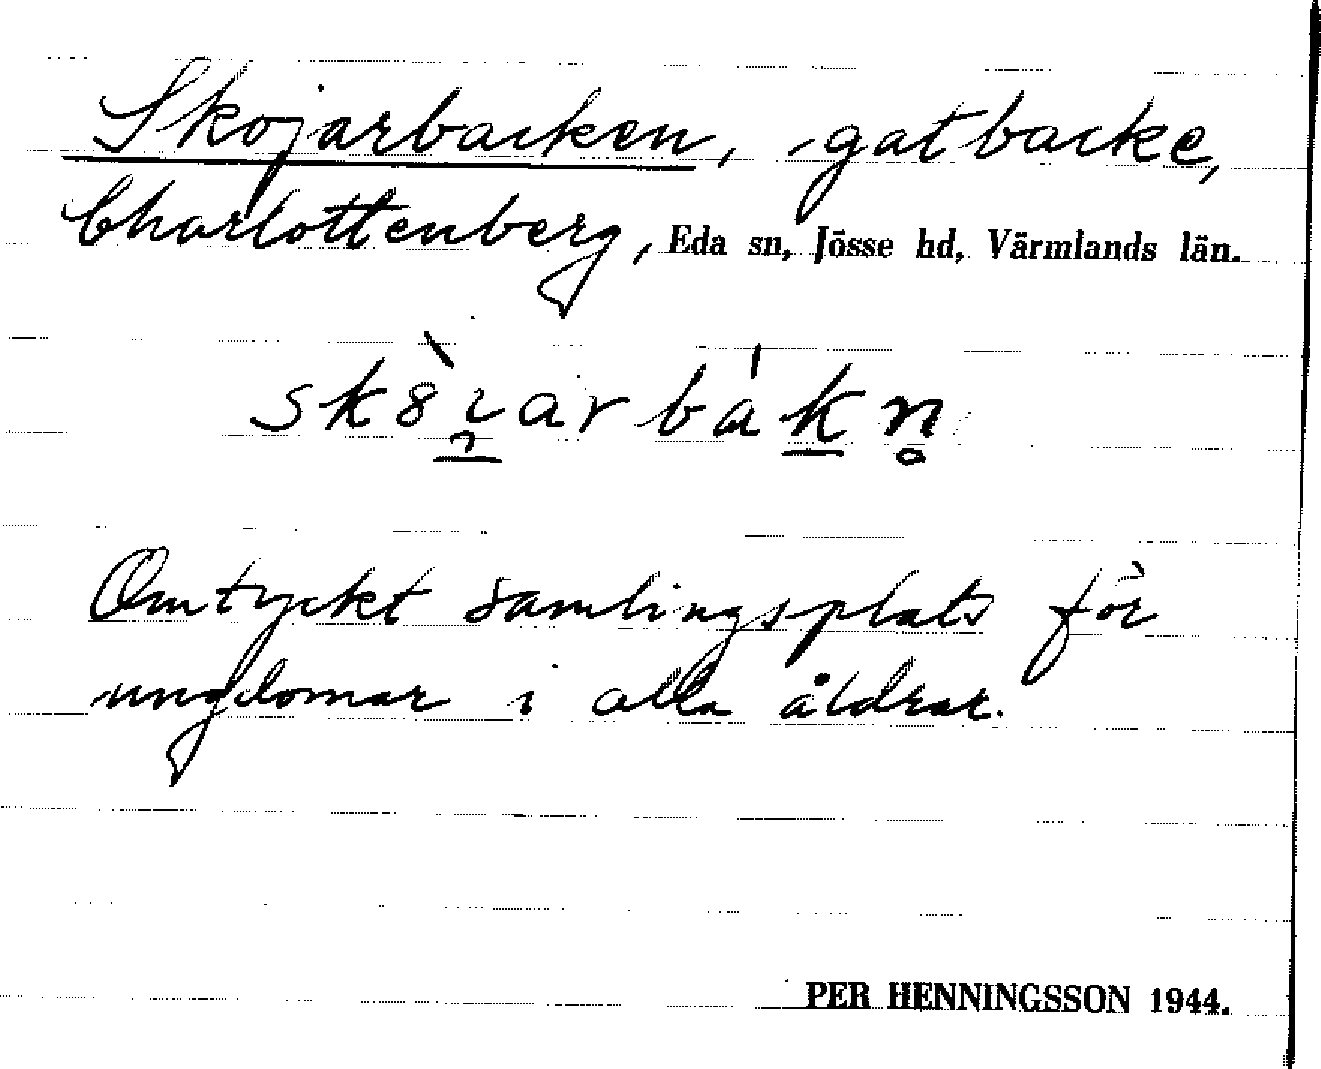 Skojarbacken, gatbacke,
Charlottenberg, Eda sn, Jösse hd, Värmlands län.
Omtyckt samlingsplats för
ungdomar i alla åldrar.
PER HENNINGSSON 1944.